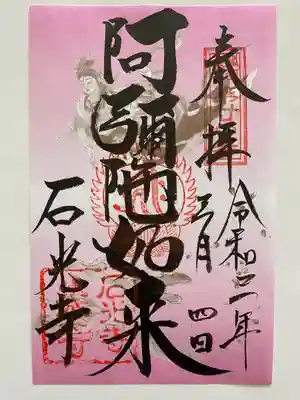 奉拝
令和二年
三月
四日
阿彌陀如来
石光寺
石光寺